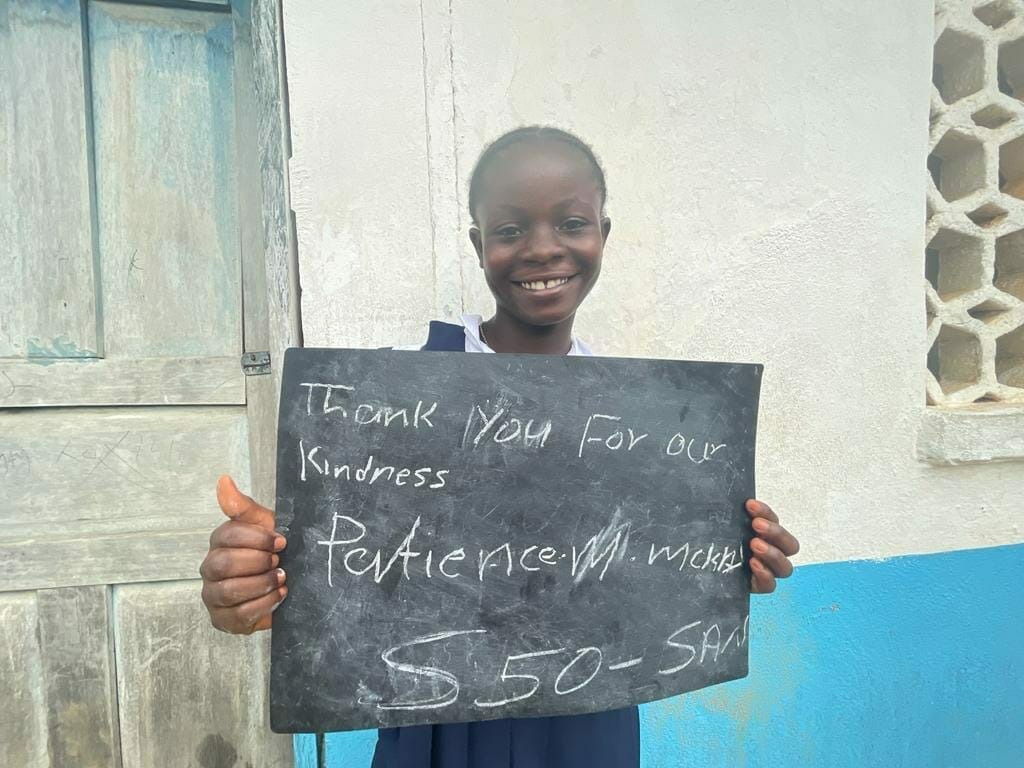 Thank You For our
Kindness
Patience.M.
S 50-SAN